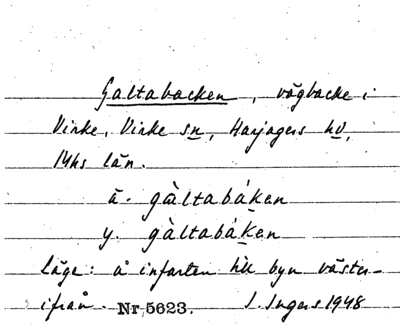 Galtabacken, vägbacke i
Virke, Virke sn, Harjagers hd,
Mhs län.
ä. gàltabáken
y. gàltabáken
Läge: å infarten till byn väster-
ifrån. Nr 5623. I. Ingers 1948